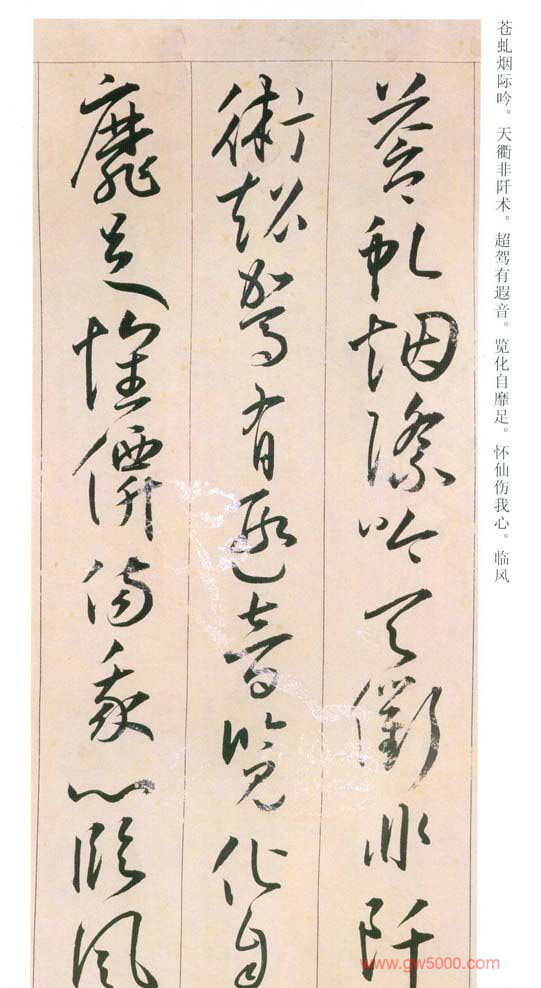 苍虬烟际吟。天衢非阡术。超驾有遐音。览化自靡足。怀仙伤我心。临风
蒼虬烟際吟天衢非阡
術超駕有遐音覽化自
靡足懷僊傷我心臨風
www.gw5000.com